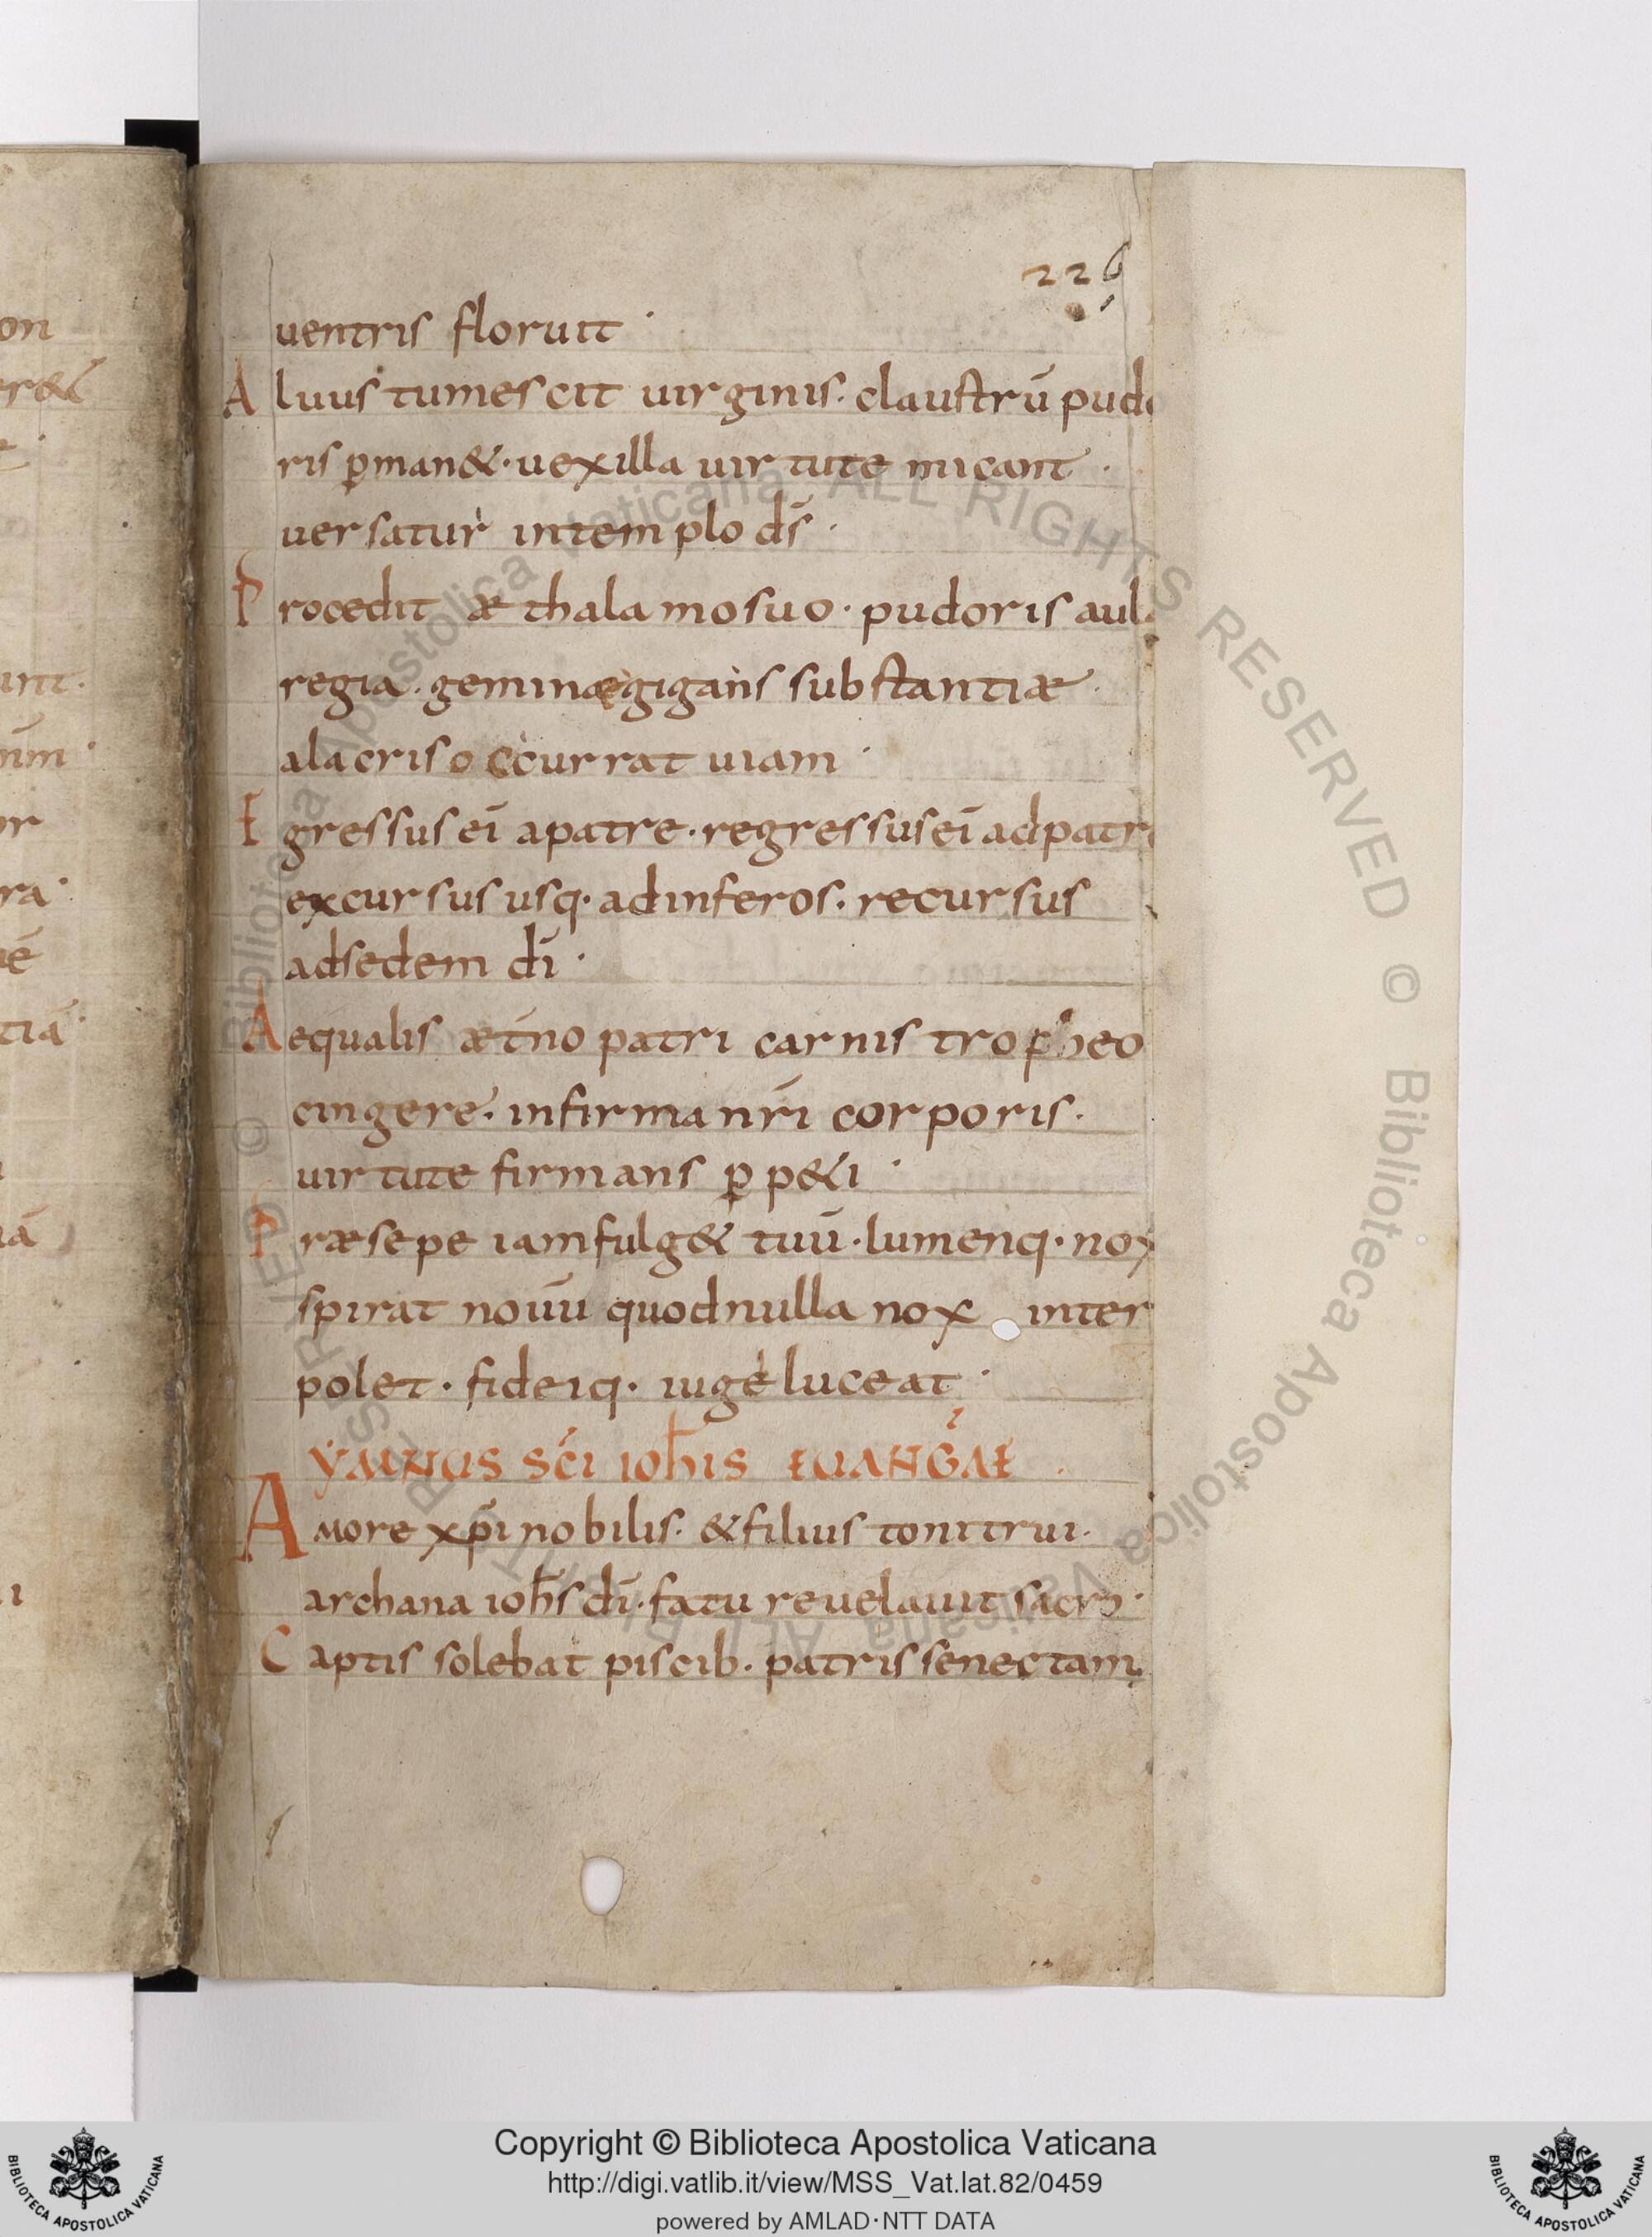 226
uentris floruit ·
Aluus tumescit uirginis · claustrū pudo
ris ꝑman& · uexilla uirtute micant ·
uersatur in templo ds̄ ·
Procedit æ thalamo suo · pudoris aula
regia · geminæ gigans substantiæ ·
alacris occurrat uiam ·
Egressus ei̅ a patre · regressus ei̅ ad patre
excursus usq· ad inferos · recursus
ad sedem dī ·
Aequalis æt̄no patri carnis tropheo
cingere · infirma nr̄i corporis ·
uirtute firmans ꝑp&i ·
Præsepe iam fulg& tuū · lumenq· nox
spirat nouū quod nulla nox inter
polet · fideiq· iuge luceat ·
YMNUS SC̄I IOH̄IS EUANḠÆE ·
Amore xp̄i nobilis · & filius tonitrui ·
archana ioh̄s dī · fatu reuelauit sacro ·
Captis solebat piscib· patris senectam
Copyright © Biblioteca Apostolica Vaticana
http://digi.vatlib.it/view/MSS_Vat.lat.82/0459
powered by AMLAD·NTT DATA
BIBLIOTECA APOSTOLICA VATICANA
BIBLIOTECA APOSTOLICA VATICANA